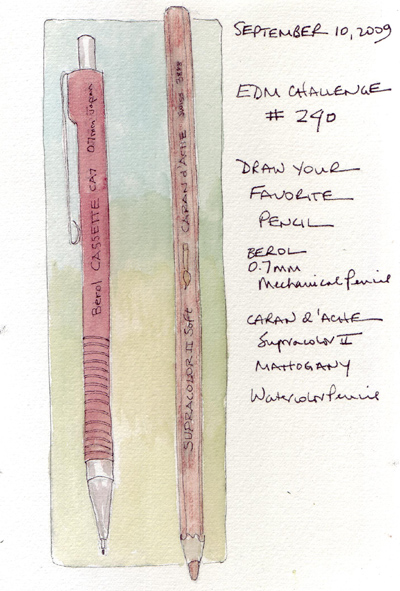 SEPTEMBER 10, 2009
EDM CHALLENGE
# 240
DRAW YOUR
FAVORITE
PENCIL
BEROL
0.7mm
Mechanical Pencil
CARAN d'ACHE
Supracolor II
MAHOGANY
Watercolor Pencil
Berol CASSETTE CA7 0.7mm Japan
SUPRACOLOR II Soft CARAN d'ACHE